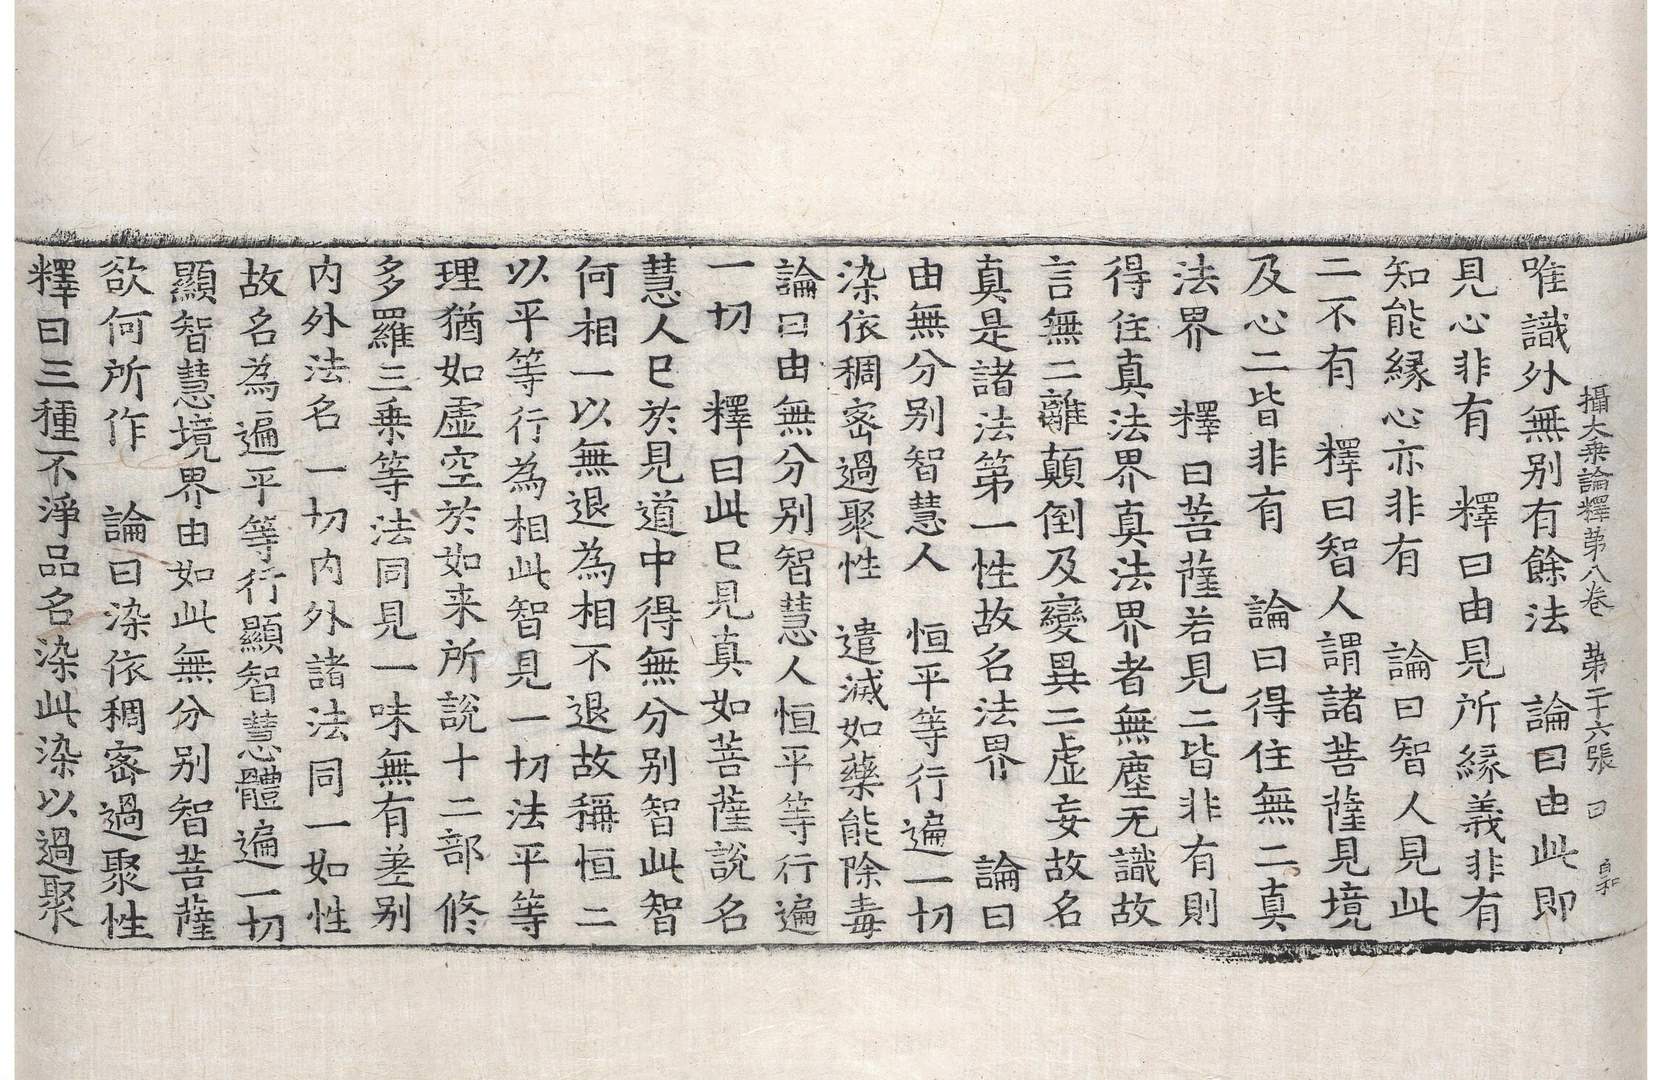 攝大乗論釋第八卷 第二十六張 曰 自和
唯識外無别有餘法 論曰由此即
見心非有 釋曰由見所縁義非有
知能縁心亦非有 論曰智人見此
二不有 釋曰智人謂諸菩薩見境
及心二皆非有 論曰得住無二真
法界 釋曰菩薩若見二皆非有則
得住真法界真法界者無塵无識故
言無二離顛倒及變異二虚妄故名
真是諸法第一性故名法界 論曰
由無分别智慧人 恒平等行遍一切
染依稠宻過聚性 遣滅如藥能除毒
論曰由無分别智慧人恒平等行遍
一切 釋曰此巳見真如菩薩說名
慧人巳於見道中得無分别智此智
何相一以無退為相不退故稱恒二
以平等行為相此智見一切法平等
理猶如虚空於如来所說十二部修
多羅三乗等法同見一味無有差别
内外法名一切内外諸法同一如性
故名為遍平等行顯智慧體遍一切
顯智慧境界由如此無分别智菩薩
欲何所作 論曰染依稠宻過聚性
釋曰三種不淨品名染此染以過聚